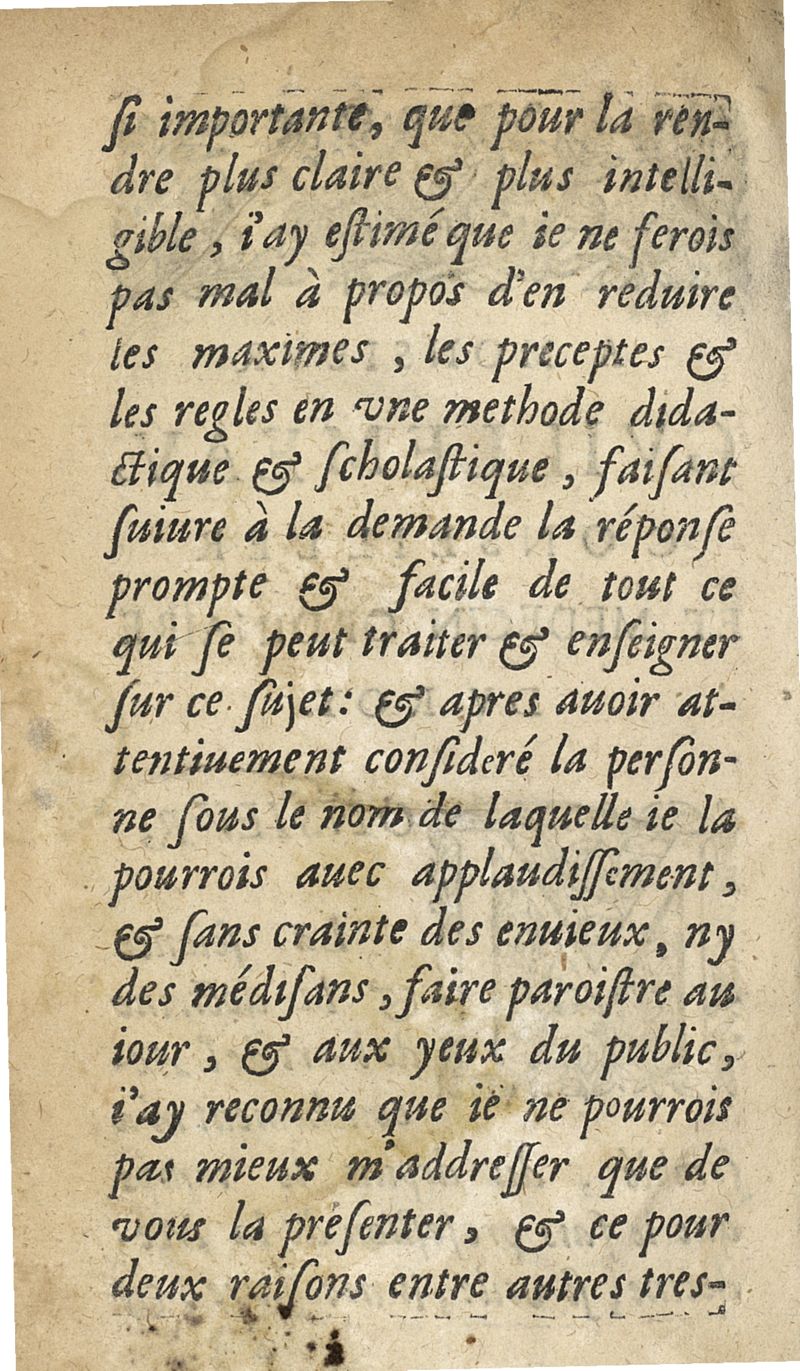 ſi importante, que pour la ren-
dre plus claire & plus intelli-
gible, i'ay eſtimé que ie ne ferois
pas mal à propos d'en reduire
les maximes, les preceptes &
les regles en vne methode dida-
ctique & ſcholaſtique, faiſant
ſuiure à la demande la réponſe
prompte & facile de tout ce
qui ſe peut traiter & enſeigner
ſur ce ſujet: & apres auoir at-
tentiuement conſideré la perſon-
ne ſous le nom de laquelle ie la
pourrois auec applaudiſſement,
& ſans crainte des enuieux, ny
des médiſans, faire paroiſtre au
iour, & aux yeux du public,
i'ay reconnu que ie ne pourrois
pas mieux m'addreſſer que de
vous la preſenter, & ce pour
deux raiſons entre autres tres-